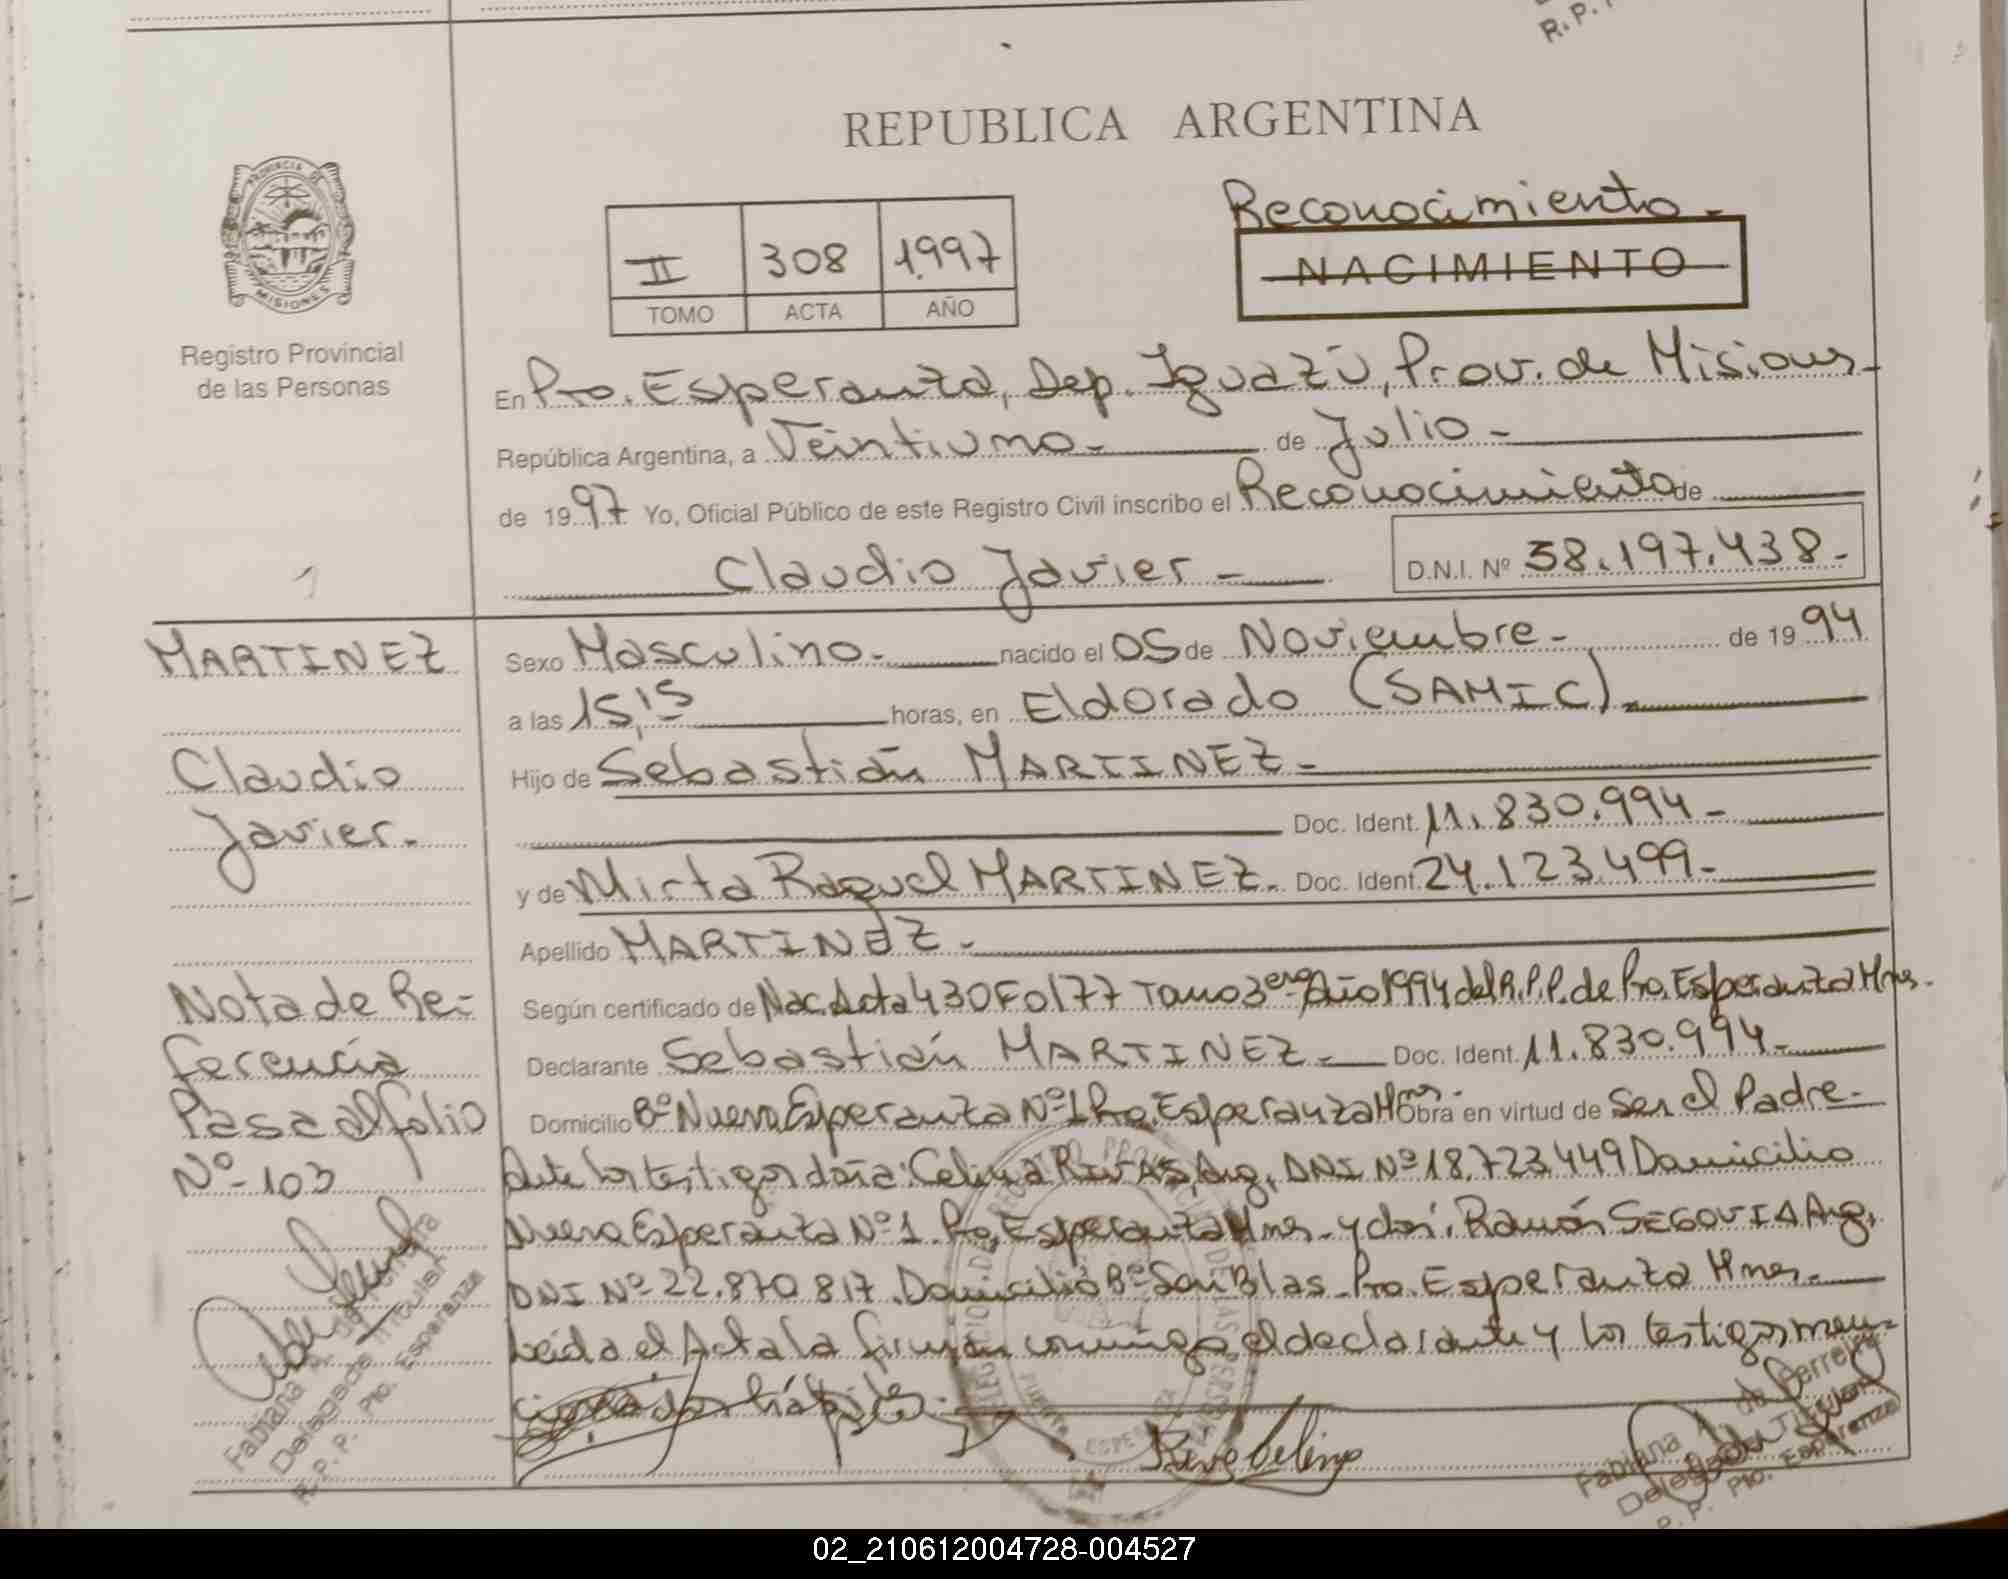 R.P.
REPUBLICA ARGENTINA
PROVINCIA DE
MISIONES
Registro Provincial
de las Personas
II 308 1997
TOMO ACTA AÑO
Reconocimiento -
NACIMIENTO
En Pto. Esperanza, Dep. Iguazú, Prov. de Misiones -
República Argentina, a Veintiuno - de Julio -
de 1997 Yo, Oficial Público de este Registro Civil inscribo el Reconocimiento de
Claudio Javier - D.N.I. Nº 38.197.438.-
MARTINEZ
Claudio
Javier.-
Nota de Re-
ferencia
Pasa al folio
Nº-103
Sexo Masculino.- nacido el 05 de Noviembre - de 1994
a las 15,15 horas, en Eldorado (SAMIC).-
Hijo de Sebastián MARTINEZ -
Doc. Ident. 11.830.994 -
y de Mirta Raquel MARTINEZ - Doc. Ident. 24.123.499 -
Apellido MARTINEZ -
Según certificado de Nac. Acta 430 Fo 177 Tomo 3ero Año 1994 del R.P.P. de Pto. Esperanza Mnes.
Declarante Sebastián MARTINEZ - Doc. Ident. 11.830.994 -
Domicilio Bº Nueva Esperanza Nº 1 Pto. Esperanza Mnes - Obra en virtud de Ser el Padre -
Ante los testigos doña: Celina RIVAS, Arg, DNI Nº 18.723.449 Domicilio
Nueva Esperanza Nº 1 Pto. Esperanza Mnes - y don: Ramón SEGOVIA Arg,
DNI Nº 22.870.817. Domicilio Bº San Blas - Pto. Esperanza Mnes -
Leída el Acta la firman conmigo el declarante y los testigos men-
cionados hábiles.-
Fabiana de Ferreira
Delegada Titular
R. P. P. Pto. Esperanza
Fabiana de Ferreira
Delegada Titular
R. P. P. Pto. Esperanza
02_210612004728-004527